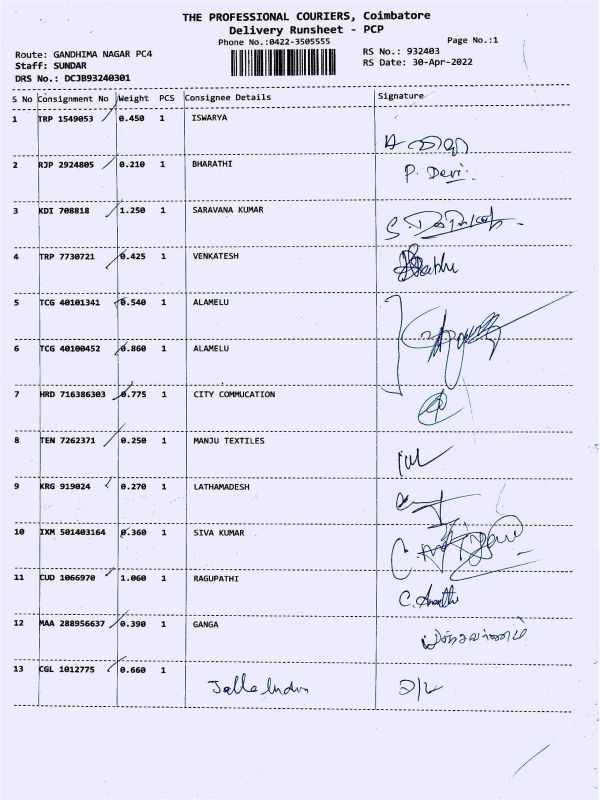 THE PROFESSIONAL COURIERS, Coimbatore
Delivery Runsheet - PCP
Phone No.:0422-3505555
Page No.:1
Route: GANDHIMA NAGAR PC4
RS No.: 932403
Staff: SUNDAR
RS Date: 30-Apr-2022
DRS No.: DCJB93240301
S No Consignment No Weight PCS Consignee Details Signature
1 TRP 1549053 0.450 1 ISWARYA
2 RJP 2924805 0.210 1 BHARATHI P. Devi
3 KDI 708818 1.250 1 SARAVANA KUMAR
4 TRP 7730721 0.425 1 VENKATESH
5 TCG 40101341 0.540 1 ALAMELU
6 TCG 40100452 0.860 1 ALAMELU
7 HRD 716386303 0.775 1 CITY COMMUCATION
8 TEN 7262371 0.250 1 MANJU TEXTILES
9 KRG 919024 0.270 1 LATHAMADESH
10 IXM 501403164 0.360 1 SIVA KUMAR
11 CUD 1066970 1.060 1 RAGUPATHI
12 MAA 288956637 0.390 1 GANGA
13 CGL 1012775 0.660 1